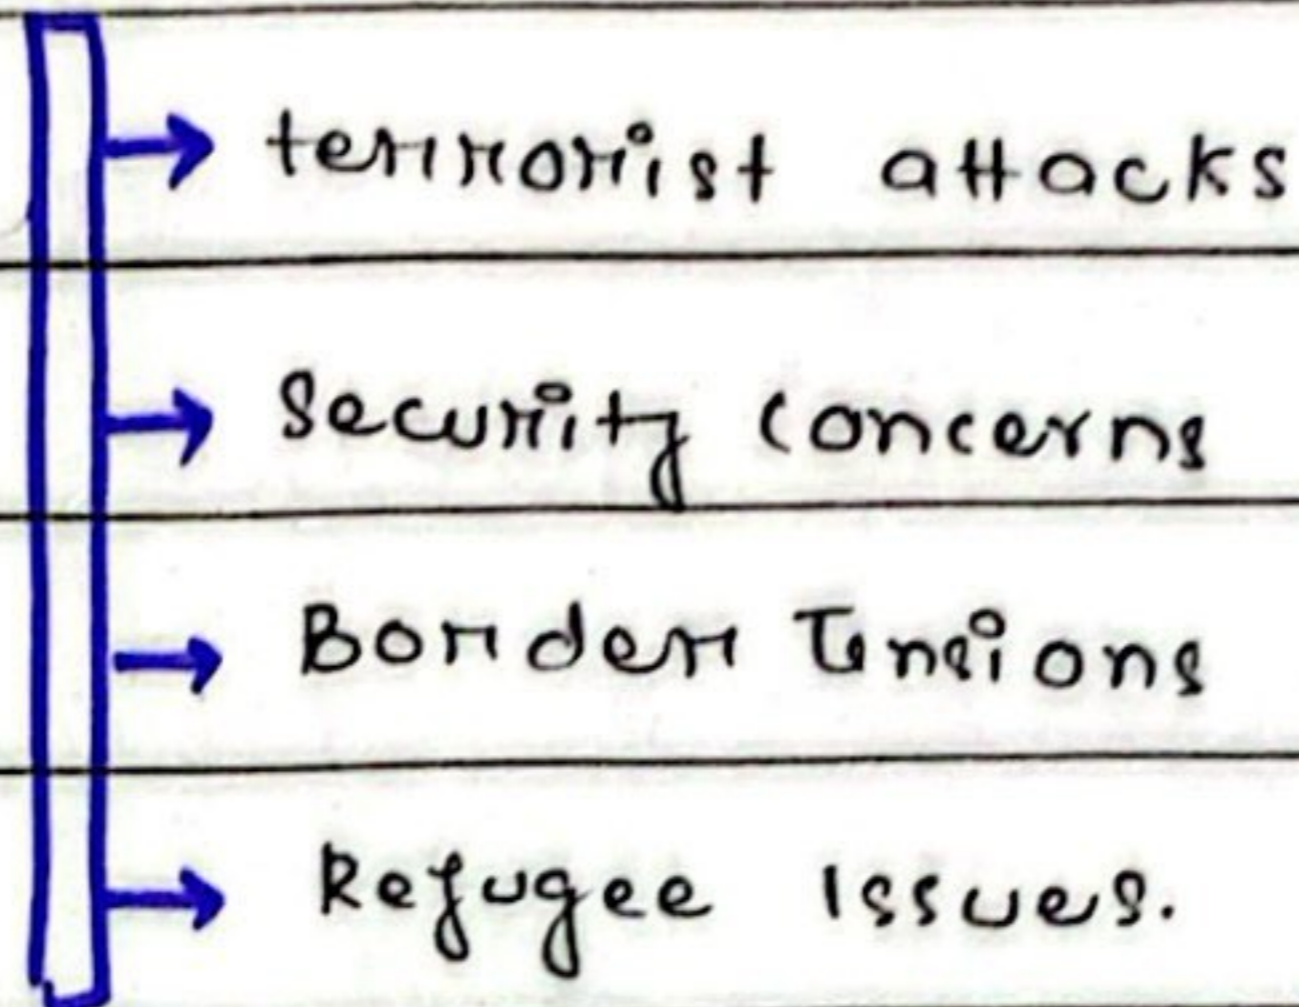 → terrorist attacks
→ Security Concerns
→ Border Tensions
→ Refugee Issues.